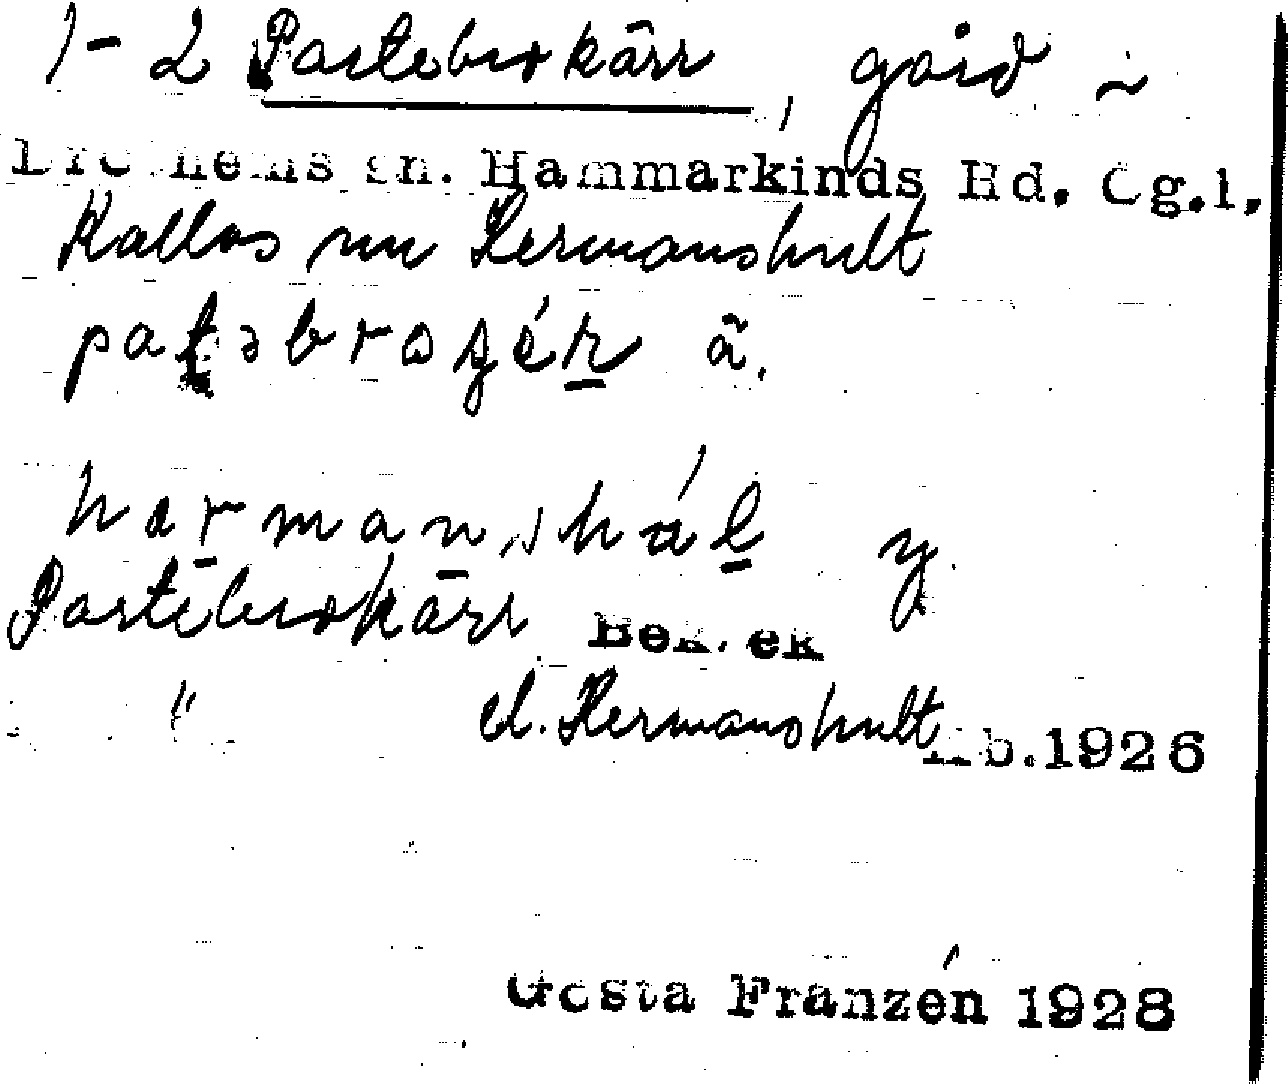 1-2 Pastebrokärr, gård i
Drothems sn. Hammarkinds Hd. Ög.l.
Kallas nu Hermanshult
patəbrogǽr ä.
harmanshál y.
Pastebrokärr Bek. ek
" el. Hermanshult Kb. 1926
Gösta Franzén 1928